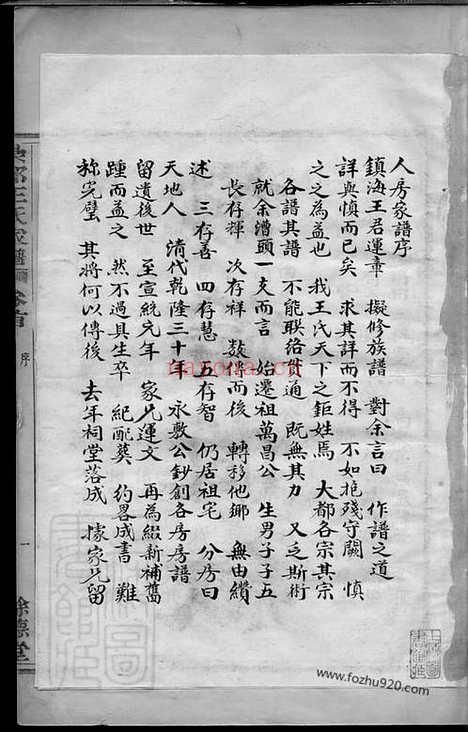 人房家譜序
鎮海王君運章　擬修族譜　對余言曰　作譜之道
詳與慎而已矣　求其詳而不得　不如抱殘守闕　慎
之之為益也　我王氏天下之鉅姓焉　大都各宗其宗
各譜其譜　不能联络贯通　既無其力　又乏斯術
就余漕頭一支而言　始遷祖萬昌公　生男子子五
長存輝　次存祥　數傳而後　轉移他鄉　無由纘
述　三存善　四存慧　五存智　仍居祖宅　分房曰
天地人　清代乾隆三十年　永敷公鈔創各房房譜
留遺後世　至宣統元年　家兄運文　再為綴新補舊
踵而益之　然不過具生卒　紀配葬　約畧成書　難
称完璧　其將何以傳後　去年祠堂落成　據家兄留
氏家譜
卷首
序
一
餘慶堂
nayona.cn
www.fozhu920.com